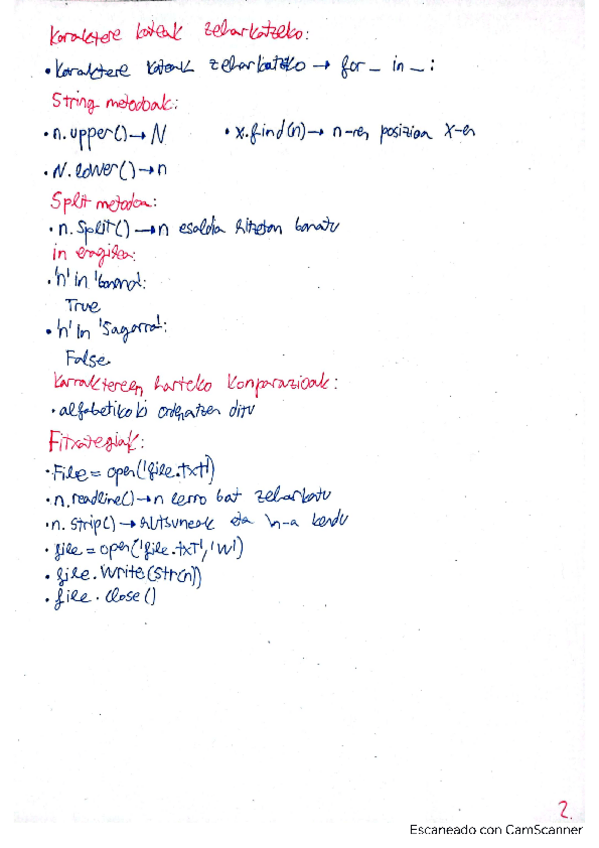 Karaktere kateak zeharkatzeko:
• Karaktere kateak zeharkatzeko → for _ in _ :
String metodoak:
• n.upper() → N
• x.find(n) → n-ren posizioa X-en
• N.lower() → n
Split metodoa:
• n.split() → n esaldia hitzetan banatu
in eragilea:
• 'n' in 'banana':
True
• 'n' in 'Sagarra':
False
Karaktereen harteko konparazioak:
• alfabetikoki ordenatzen ditu
Fitxategiak:
• File = open('file.txt')
• n.readline() → n lerro bat zeharkatu
• n.strip() → hutsuneak eta \n-a kendu
• file = open('file.txt', 'w')
• file.write(str(n))
• file.close()
2.
Escaneado con CamScanner